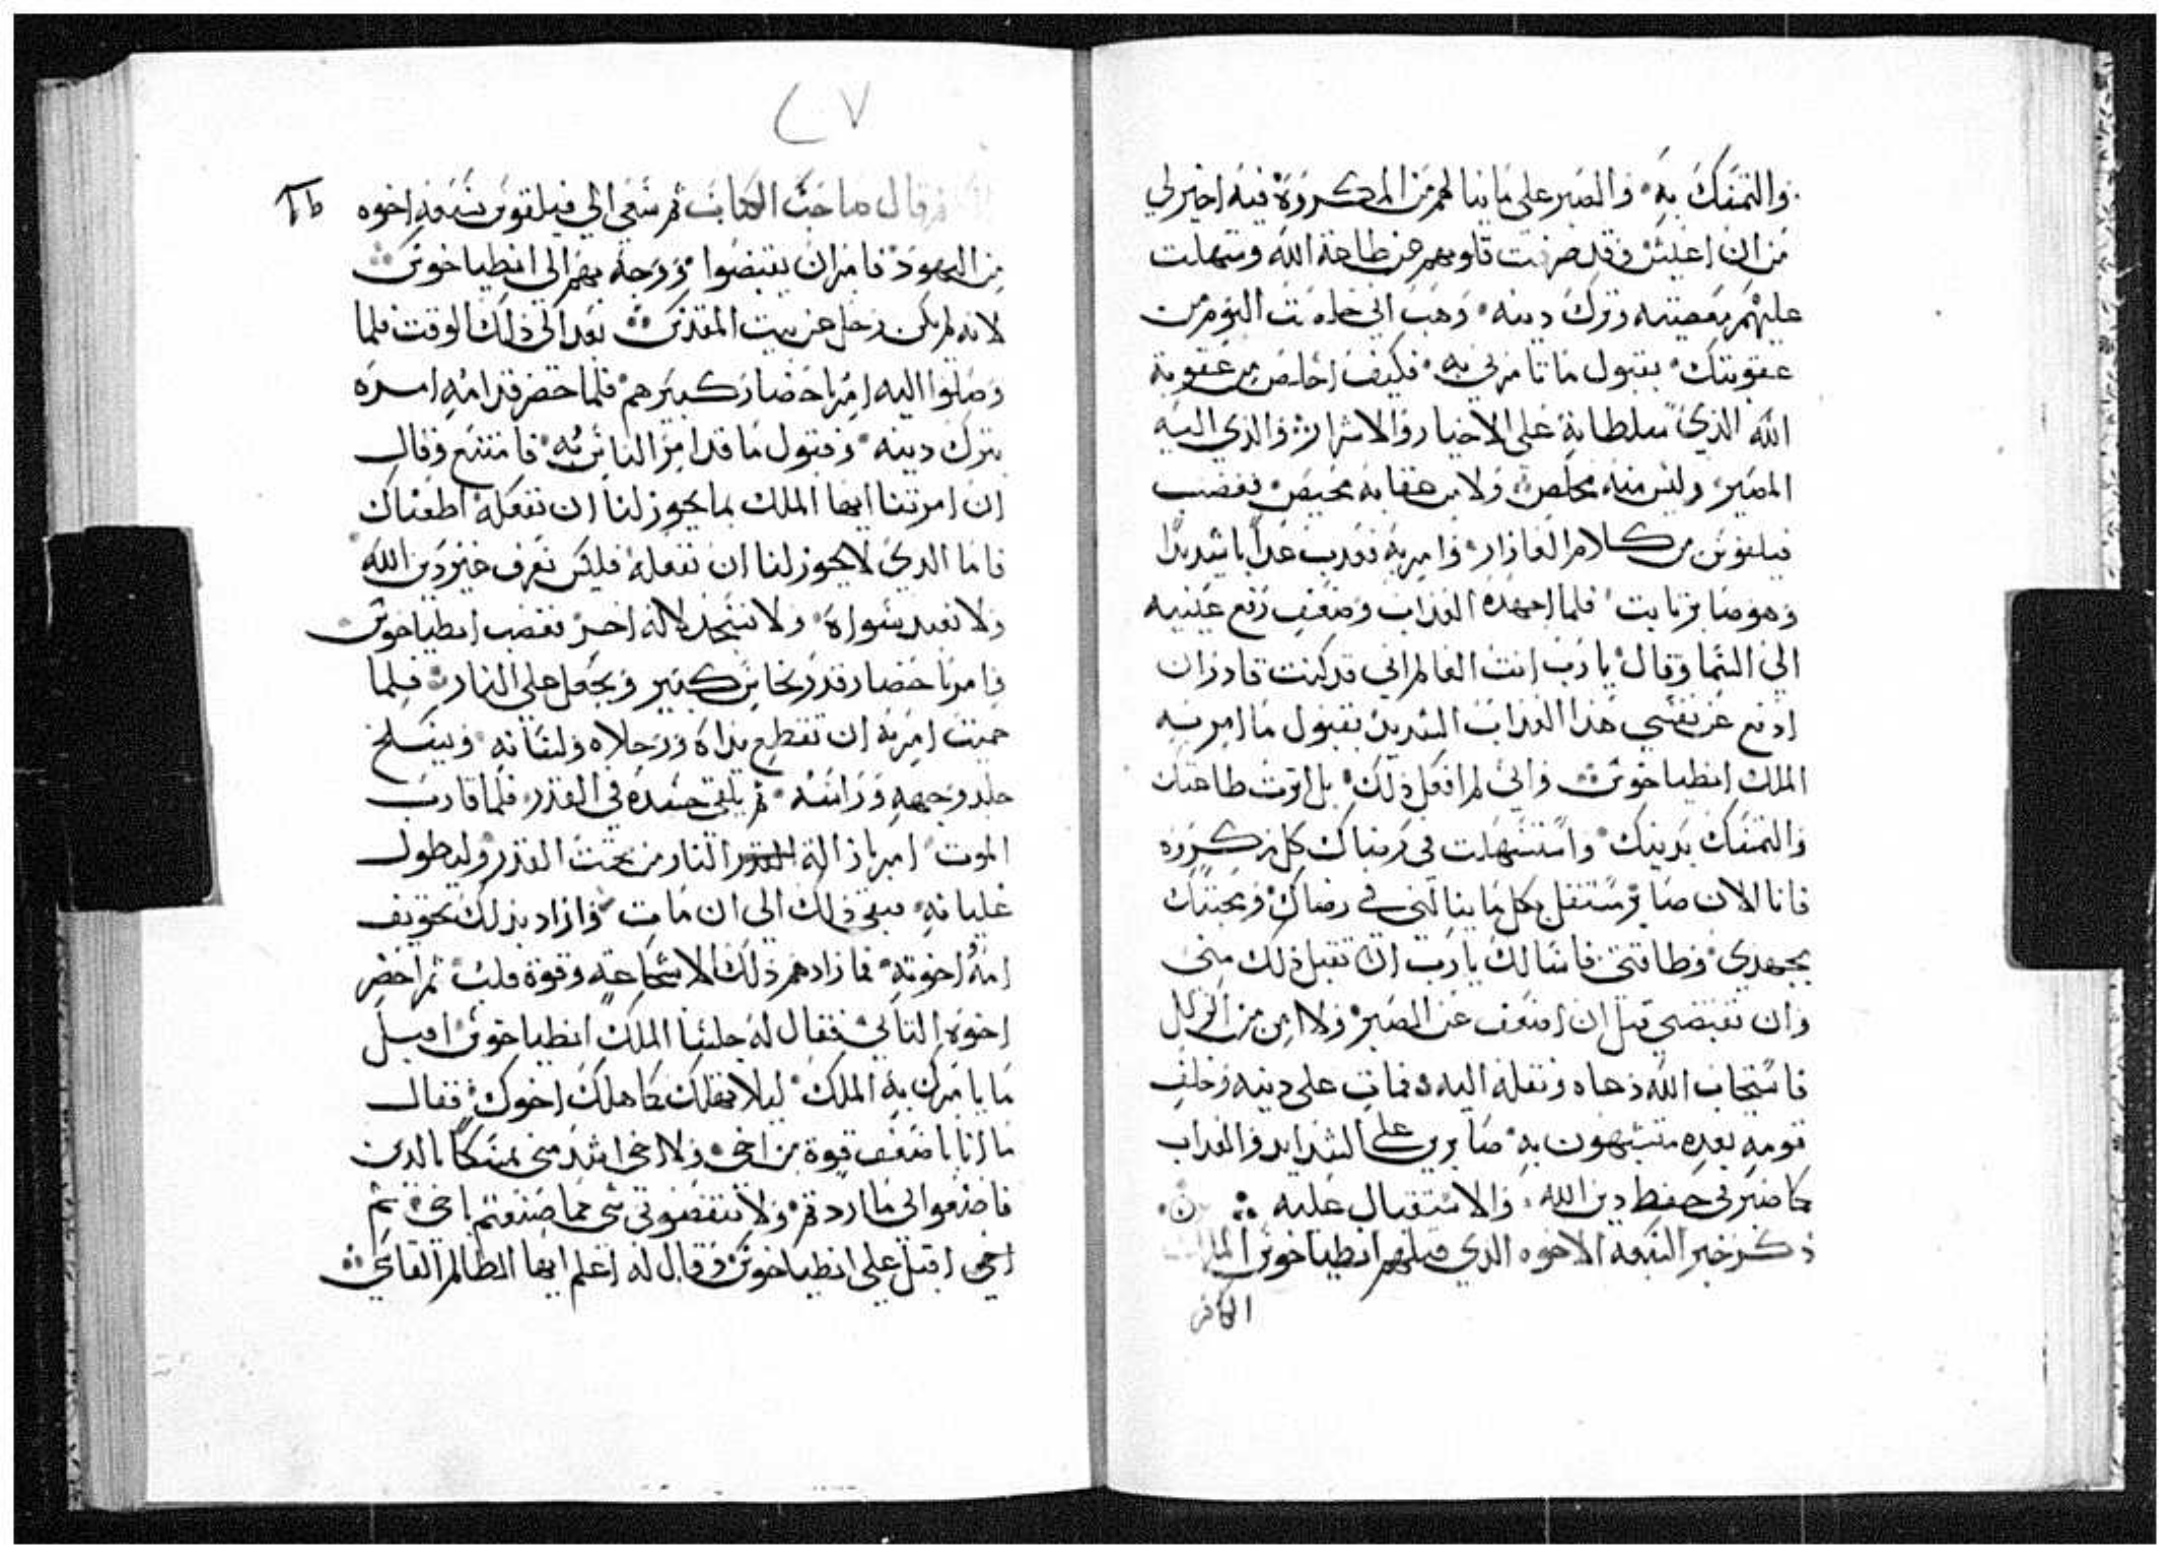 والتمسك به والصبر على ما ينالهم من المكروه فيه اخير لي
من ان اعيش وقد صرفت قلوبهم عن طاعة الله وسهلت
عليهم معصيته وترك دينه وهب اني خلصت اليوم من
عقوبتك بقبول ما تامرني به فكيف اخلص من عقوبة
الله الذي سلطانه على الاخيار والاشرار والذي اليه
المصير وليس منه مخلص ولا من عقابه محيص فغضب
فيلقوس من كلام العازار وامر به فعذب عذاباً شديداً
وهو صابر ثابت فلما اجهده العذاب وضعف رفع عينيه
الى السما وقال يا رب انت العالم اني قد كنت قادر ان
ادفع عن نفسي هذا العذاب الشديد بقبول ما امر به
الملك انطياخوس واني لم افعل ذلك بل اثرت طاعتك
والتمسك بدينك واستسهلت في مرضاك كل مكروه
فانا الان صابر مستقل بكل ما ينالني في رضاك ومحبتك
بجهدي وطاقتي فاسالك يا رب ان تقبل ذلك مني
وان تقبضي قبل ان اضعف عن الصبر ولا امن من الزلل
فاستجاب الله دعاه ونقله اليه فمات على دينه وخلف
قومه بعده متشبهون به صابرين على الشدايد والعذاب
كما صبر في حفظ دين الله والاستقبال عليه
ذكر خبر السبعة الاخوه الذي قتلهم انطياخوس الملك
الكافر
٢٧
قال صاحب الكتاب ثم سعي الى فيلقوس بسبعة اخوه
من اليهود فامر ان يقبضوا ووجه بهم الى انطياخوس
لانه لم يكن رحل عن بيت المقدس بعد الى ذلك الوقت فلما
وصلوا اليه امر باحضار كبيرهم فلما حضر قدامه امره
بترك دينه وقبول ما قد امر الناس به فامتنع وقال
ان امرتنا ايها الملك بما يجوز لنا ان نفعله اطعناك
فاما الدي لا يجوز لنا ان نفعله فليس نعرف غير دين الله
ولا نعبد سواه ولا نسجد لاله اخر فغضب انطياخوس
وامر باحضار قدر نحاس كبير ويجعل على النار فلما
حميت امر به ان تقطع يداه ورجلاه ولسانه وينسلخ
جلد وجهه وراسه ثم يلقي جسده في القدر فلما قارب
الموت امر بازالة النار من تحت القدر وليطول
غليانه فبقي ذلك الى ان مات واراد بذلك تخويف
امه اخوته فما زادهم ذلك الا شجاعة وقوة قلب ثم احضر
اخوه الثاني فقال له جلسا الملك انطياخوس اقبل
ما يامرك به الملك ليلا تهلك كما هلك اخوك فقال
ما انا باضعف قوة من اخي ولا اخي اشد مني تمسكاً بالدين
فاصنعوا لي ما اردتم ولا تنقصوني شي مما صنعتم باخي ثم
اخي اقبل على انطياخوس وقال له اعلم ايها الظالم القاسي